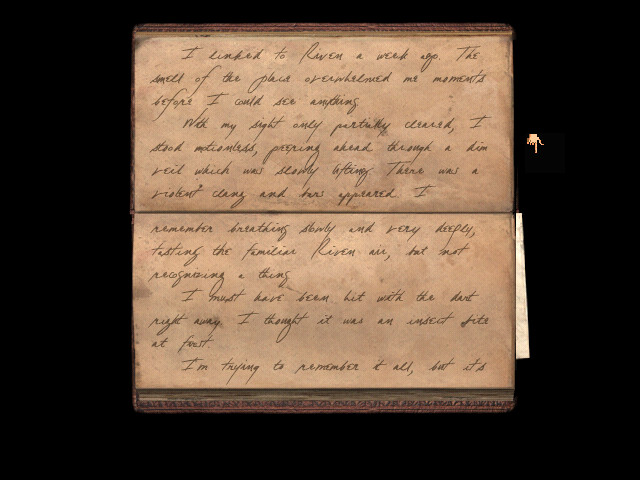 I linked to Riven a week ago. The
smell of the place overwhelmed me moments
before I could see anything.
With my sight only partially cleared, I
stood motionless, peering ahead through a dim
veil which was slowly lifting. There was a
violent clang and bars appeared. I
remember breathing slowly and very deeply,
tasting the familiar Riven air, but not
recognizing a thing.
I must have been hit with the dart
right away. I thought it was an insect bite
at first.
I'm trying to remember it all, but it's